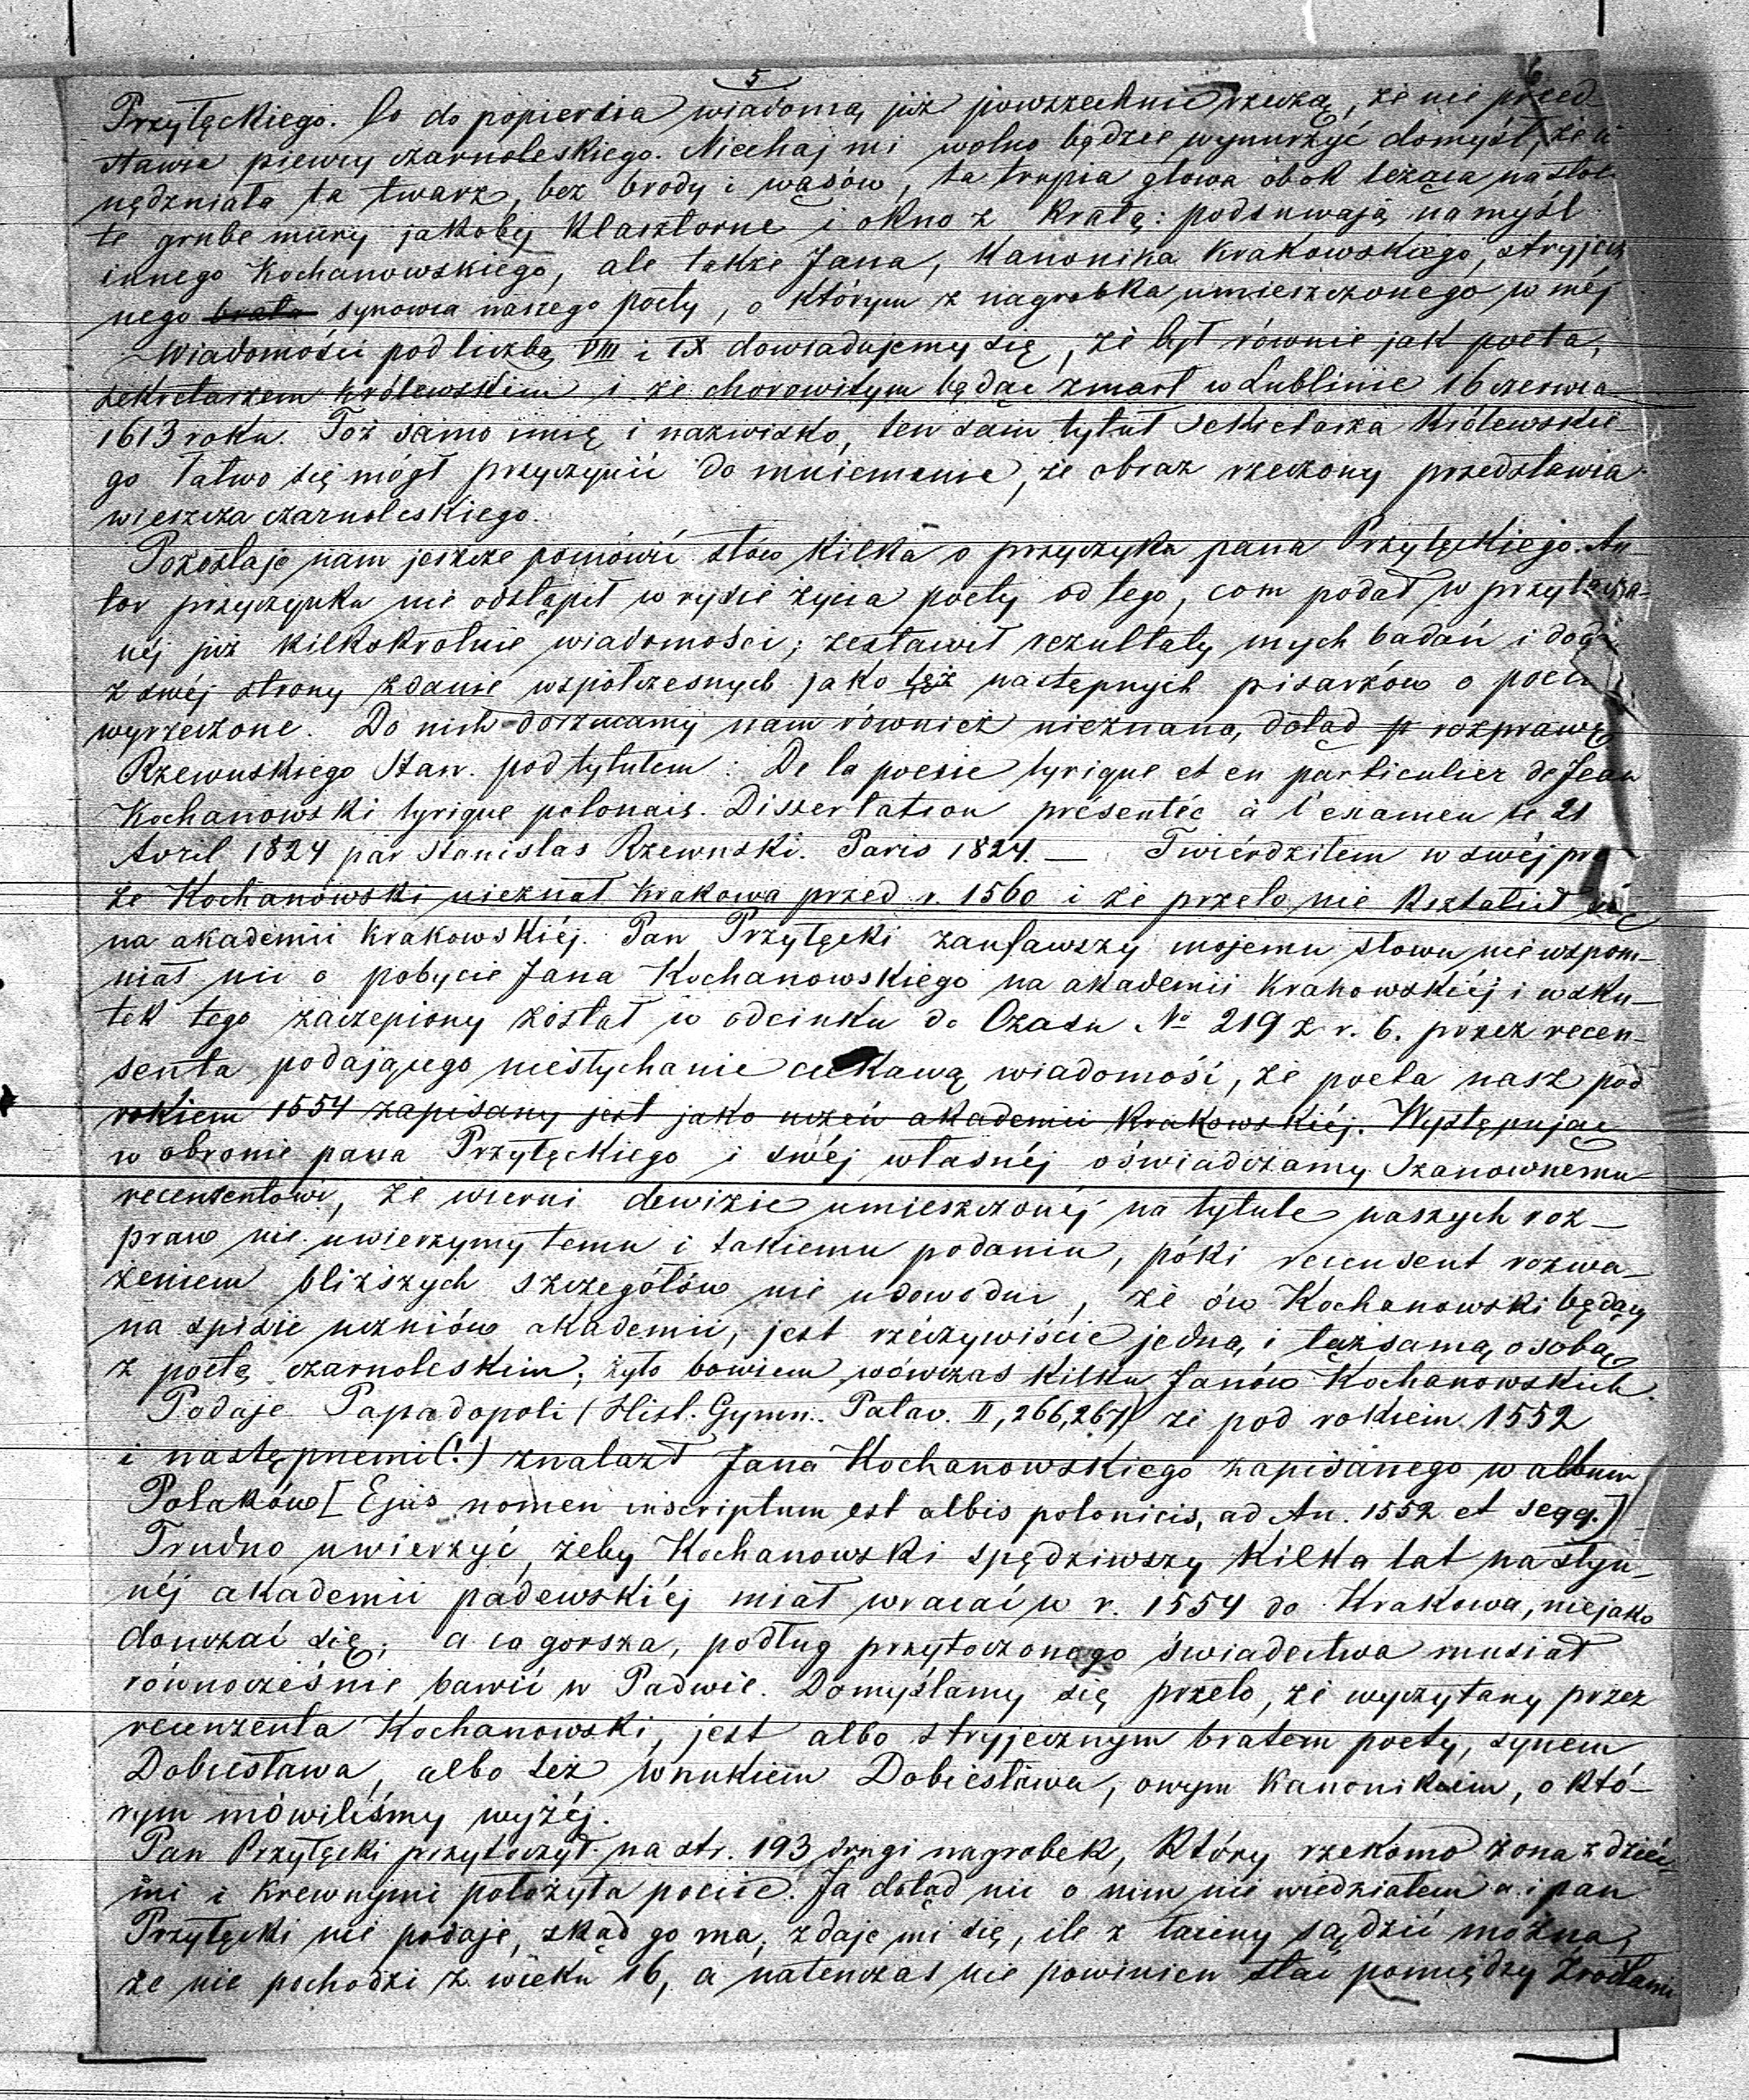 5
6
Przyłęckiego. Co do popiersia wiadomą już powszechnie rzeczą, że nie przed-
stawia piewcy czarnoleskiego. Niechaj mi wolno będzie wynurzyć domysł, że
nędzniała ta twarz, bez brody i wąsów, ta trupia głowa obok leżąca na stole
te grube mury jakoby klasztorne i okno z kratą: podsuwają na myśl
innego Kochanowskiego, ale także Jana, Kanonika Krakowskiego, stryjecz
nego brata synowca naszego poety, o którym z nagrobka umieszczonego w méj
Wiadomości pod liczbą VIII i IX dowiadujemy się, że był równie jak poeta,
sekretarzem królewskim i że chorowitym będąc zmarł w Lublinie 16 czerwca
1613 roku. Toż samo imię i nazwisko, ten sam tytuł Sekretarza Królewskie-
go łatwo się mógł przyczynić do mniemanie, że obraz rzeczony przedstawia
wieszcza czarnoleskiego.
Pozostaje nam jeszcze pomówić słów kilka o przyczynku pana Przyłęckiego. Au-
tor przyczynku nie odstąpił w rysie życia poety od tego, com podał w przytacza-
néj już kilkokrotnie wiadomości; zestawił rezultaty mych badań i dodał
z swéj strony zdanie współczesnych jako też następnych pisarzów o poecie
wyrzeczone. Do nich dorzucamy nam również nieznaną, dotąd rozprawę
Rzewuskiego Stan. pod tytułem: De la poesie lyrique et en particulier de Jean
Kochanowski lyrique polonais. Dissertation présentée à l'examen le 21
Avril 1824 par Stanislas Rzewuski. Paris 1824. — Twiérdziłem w swéj
że Kochanowski nieznał Krakowa przed r. 1560 i że przeto nie kształcił się
na akademii Krakowskiéj. Pan Przyłęcki zaufawszy mojemu słowu nie wspom-
niał nic o pobycie Jana Kochanowskiego na akademii Krakowskiéj i wsku-
tek tego zaczepiony został w odcinku do Czasu No 219 z r. 6. przez recen-
senta podającego niesłychanie ciekawą wiadomość, że poeta nasz pod
rokiem 1554 zapisany jest jako uczeń akademii Krakowskiéj. Występując
w obronie pana Przyłęckiego i swéj własnéj oświadczamy Szanownemu
recenzentowi, że wierni dewizie umieszczonéj na tytule naszych roz-
praw nie uwierzymy temu i takiemu podaniu, póki recensent rozwa-
żeniem bliższych szczegółów nie udowodni, że ów Kochanowski będący
na spisie uczniów akademii, jest rzéczywiście jedną i tążsamą osobą
z poetą czarnoleskim; żyło bowiem wówczas kilku Janów Kochanowskich.
Podaje Papadopoli (Hist. Gymn. Patav. II, 266, 267) że pod rokiem 1552
i następnemi (!) znalazł Jana Kochanowskiego zapisanego w album
Polaków [Ejus nomen inscriptum est albis polonicis, ad An. 1552 et seqq.]
Trudno uwierzyć, żeby Kochanowski spędziwszy kilka lat na słyn-
néj akademii padewskiéj miał wracać w r. 1554 do Krakowa, niejako
douczać się; a co gorsza, podług przytoczonego świadectwa musiał
równocześnie bawić w Padwie. Domyślamy się przeto, że wyczytany przez
recenzenta Kochanowski, jest albo stryjecznym bratem poety, synem
Dobiesława, albo też wnukiem Dobiesława, owym Kanonikiem, o któ-
rym mówiliśmy wyżéj.
Pan Przyłęcki przytoczył na str. 193 drugi nagrobek, który rzekomo żona z dzieć-
mi i krewnymi położyła poecie. Ja dotąd nic o nim nie wiedziałem a i pan
Przyłęcki nie podaje, zkąd go ma; zdaje mi się, ile z łaciny sądzić można,
że nie pochodzi z wieku 16, a natenczas nie powinien stać pomiędzy źrodłami